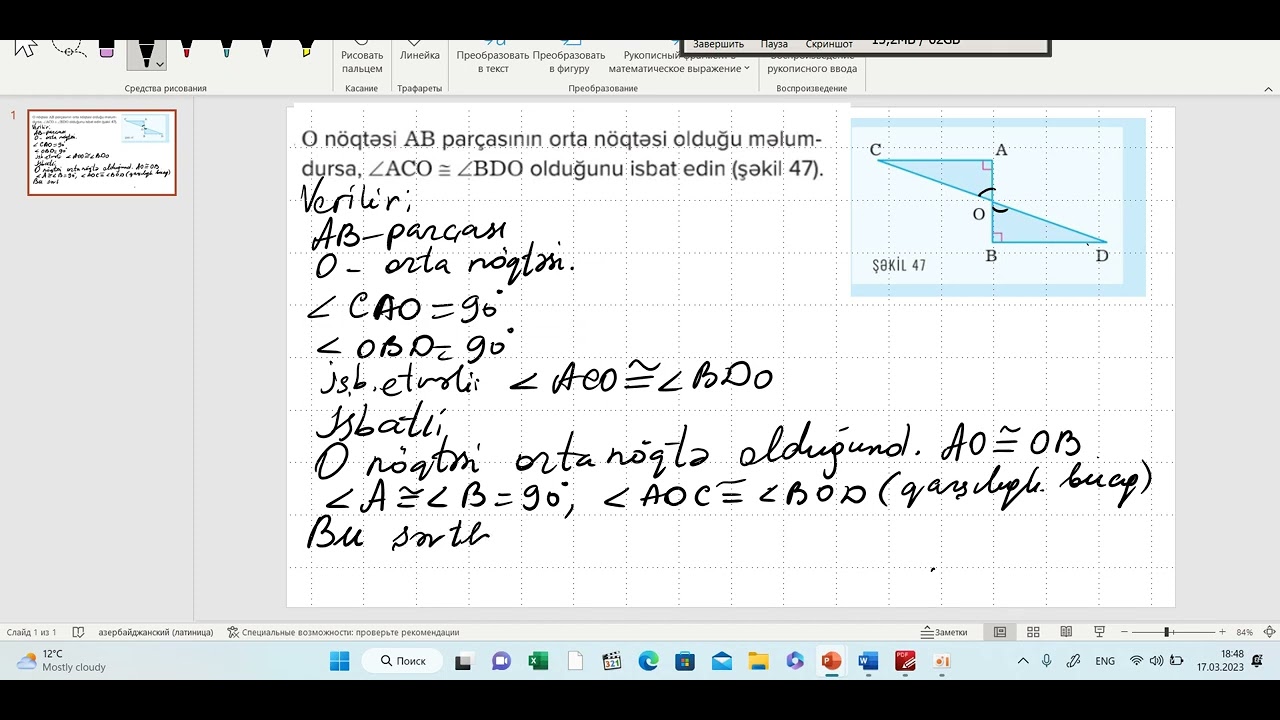 Завершить Пауза Скриншот
Рисовать пальцем
Линейка
Преобразовать в текст
Преобразовать в фигуру
математическое выражение
рукописного ввода
Средства рисования
Касание
Трафареты
Преобразование
Воспроизведение
1
O nöqtəsi AB parçasının orta nöqtəsi olduğu məlum-
dursa, ∠ACO ≅ ∠BDO olduğunu isbat edin (şəkil 47).
Verilir:
AB-parçası
O - orta nöqtəsi.
∠ CAO = 90°
∠ OBD = 90°
∠ ACO ≅ ∠ BDO
İsbatı:
O nöqtəsi orta nöqtə olduğund. AO ≅ OB
∠ A ≅ ∠ B = 90°, ∠ AOC ≅ ∠ BOD (qarşılıqlı bucaq)
Bu
C
A
O
B
D
ŞƏKİL 47
Слайд 1 из 1
азербайджанский (латиница)
Специальные возможности: проверьте рекомендации
Заметки
84%
12°C
Mostly cloudy
Поиск
ENG
18:48
17.03.2023